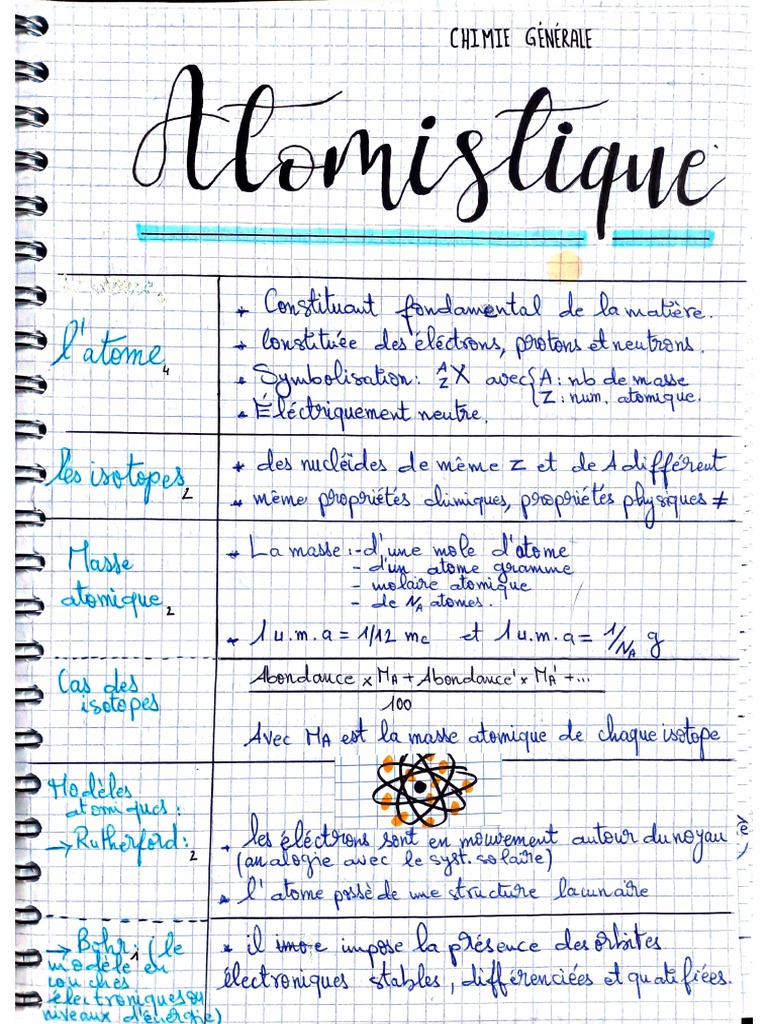 CHIMIE GÉNÉRALE
Atomistique
l'atome 4
* Constituant fondamental de la matière.
* Constituée des éléctrons, protons et neutrons.
* Symbolisation: A Z X avec { A : nb de masse
Z : num. atomique.
* Éléctriquement neutre.
les isotopes 2
* des nucléïdes de même Z et de A différent
* même propriétés chimiques, propriétés physiques ≠
Masse
atomique 2
* La masse : - d'une mole d'atome
- d'un atome gramme
- molaire atomique
- de NA atomes.
* 1 u.m.a = 1/12 mc et 1 u.m.a = 1/NA g
Cas des
isotopes
Abondance × MA + Abondance' × MA' + ...
100
Avec MA est la masse atomique de chaque isotope
Modèles
atomiques :
→ Rutherford : 2
* les éléctrons sont en mouvement autour du noyau
(analogie avec le syst. solaire)
* l'atome possède une structure lacunaire
→ Bohr : (le 1
modèle en
couches
électroniques ou
niveaux d'énergie)
* il impose la présence des orbites
électroniques stables, différenciées et quatifiées.